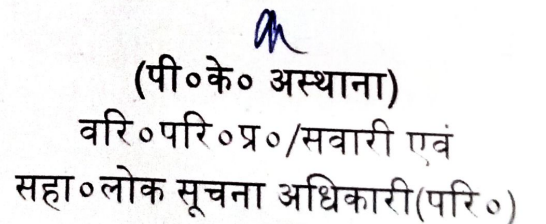 (पी०के० अस्थाना)
वरि०परि०प्र०/सवारी एवं
सहा०लोक सूचना अधिकारी(परि०)